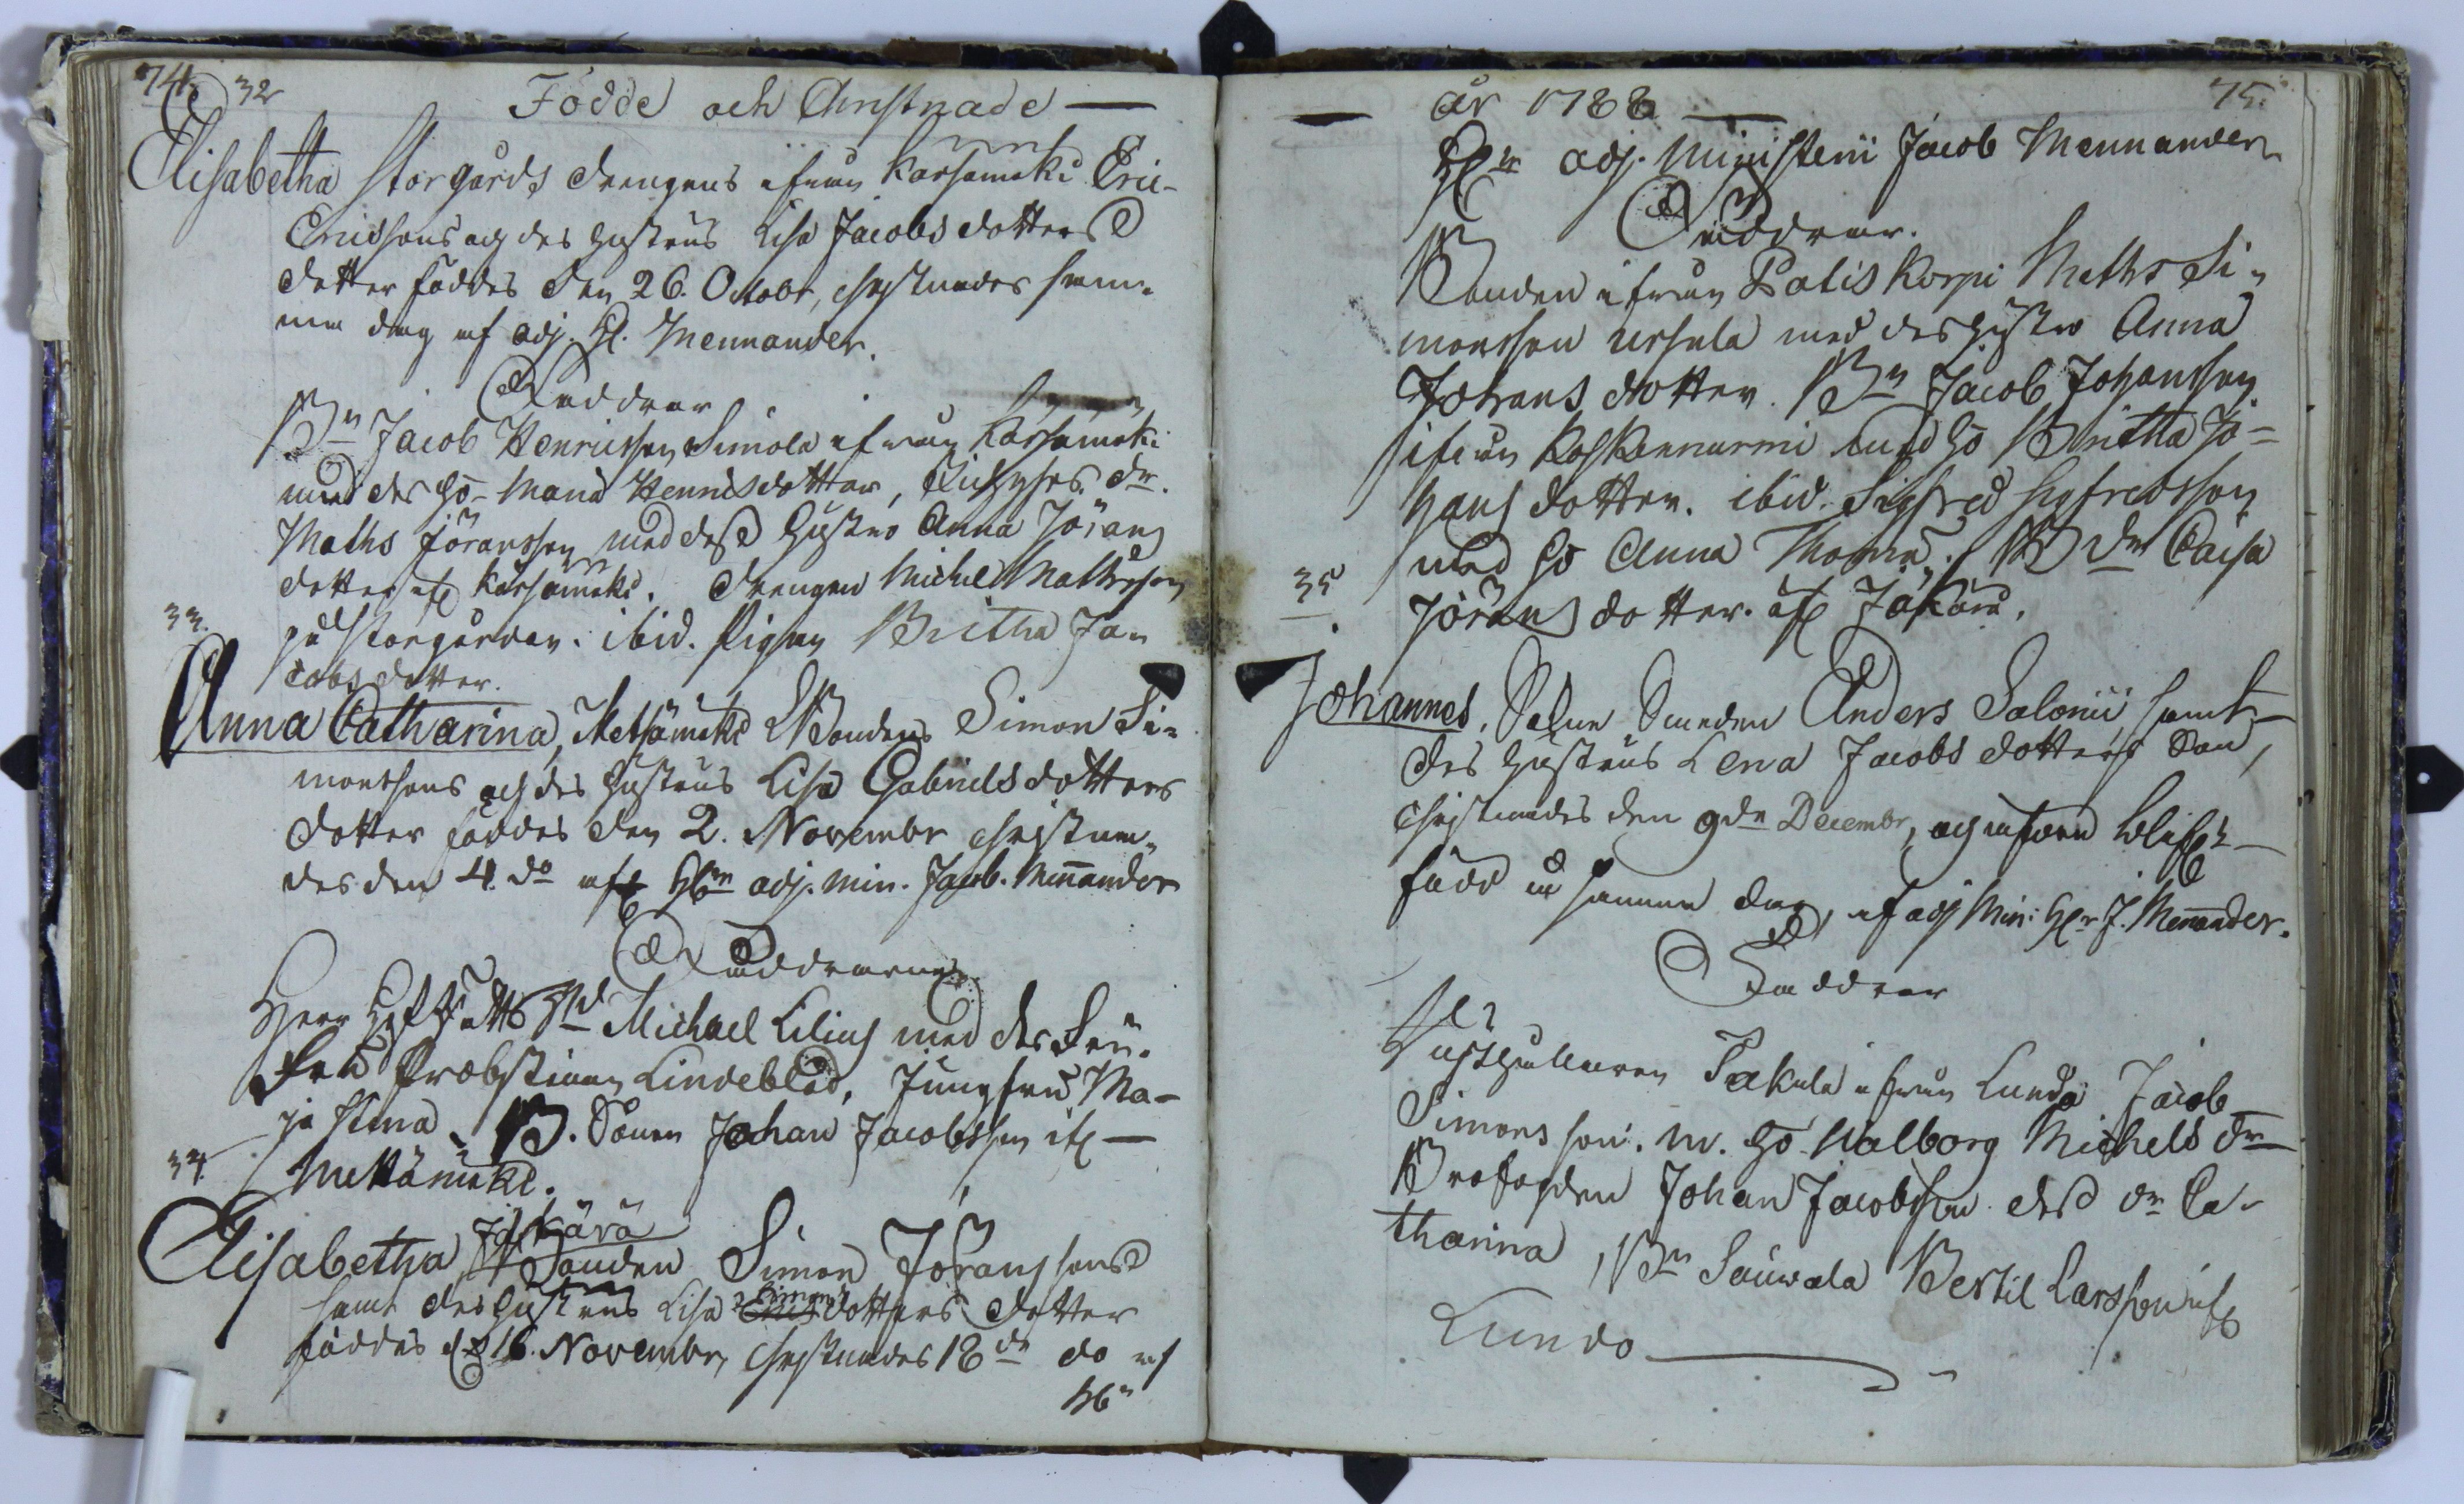 74. 32
Födde och Christnade —
Elisabetha Storgårds drengens ifrån Karsamäki Eric
Ericssons och des hustrus Lisa Jacobs dotters
dotter föddes den 26. Octobr, christnades sam-
ma dag af adj. H. Mennander.
Faddrar
Bn Jacob Henricsson Simola ifrån Karsamäki
med des ho- Maria Henricsdotter, dr.
Maths Jöransson med dess hustro Anna Jörans
dotter if Karsamäki. drengen Michel Mathsson
på Storgården. ibid. Pigan Britha Ja-
33.
cobs dotter.
Anna Catharina, Metsämäki Bondens Simon Si-
monssons och des hustrus Lisa Gabriels dotters
dotter föddes den 2. Novembr christna-
des den 4. do af Hr adj. min. Jacob. Mennander
Faddrarne
Herr Michael Lilius med des Fru.
Fru Probstinnan Lindeblad, Jungfru Ma-
ja Stina. B. Sonen Johan Jacobsson if —
34.
Mettämäki.
Jäkärä
Elisabetha, Bonden Simon Jöranssons
samt des hustrus Lisa Simons dotters dotter
föddes d 16. Novembr, christnades 18 de do af
Hr
— år 1788 — 75.
Hr adj. Ministerii Jacob Mennander
Faddrar.
Bonden ifrån Patis Korpi Maths Si-
monsson Ursula med des hustro Anna
Johans dotter. Bn Jacob Johansson
ifrån Koskennurmi med ho Britha Jo-
hans dotter. ibid. Sigfred Sigfredsson
med ho Anna Thomæ. B dr Caisa
35.
Jörans dotter. if Jäkärä.
Johannes, Smeden Anders Salonii samt
des hustrus Lena Jacobs dotters Son,
christnades den 9de Decembr, och
född samma dag, af adj Min: Hr J. Mennander.
Faddrar
Takula ifrån Lundo Jacob
Simons son. m. ho. Walborg Michels dr
Johan Jacobsson dess dr Ca-
tharina, Bn Sauwala Bertil Larsson if
Lundo